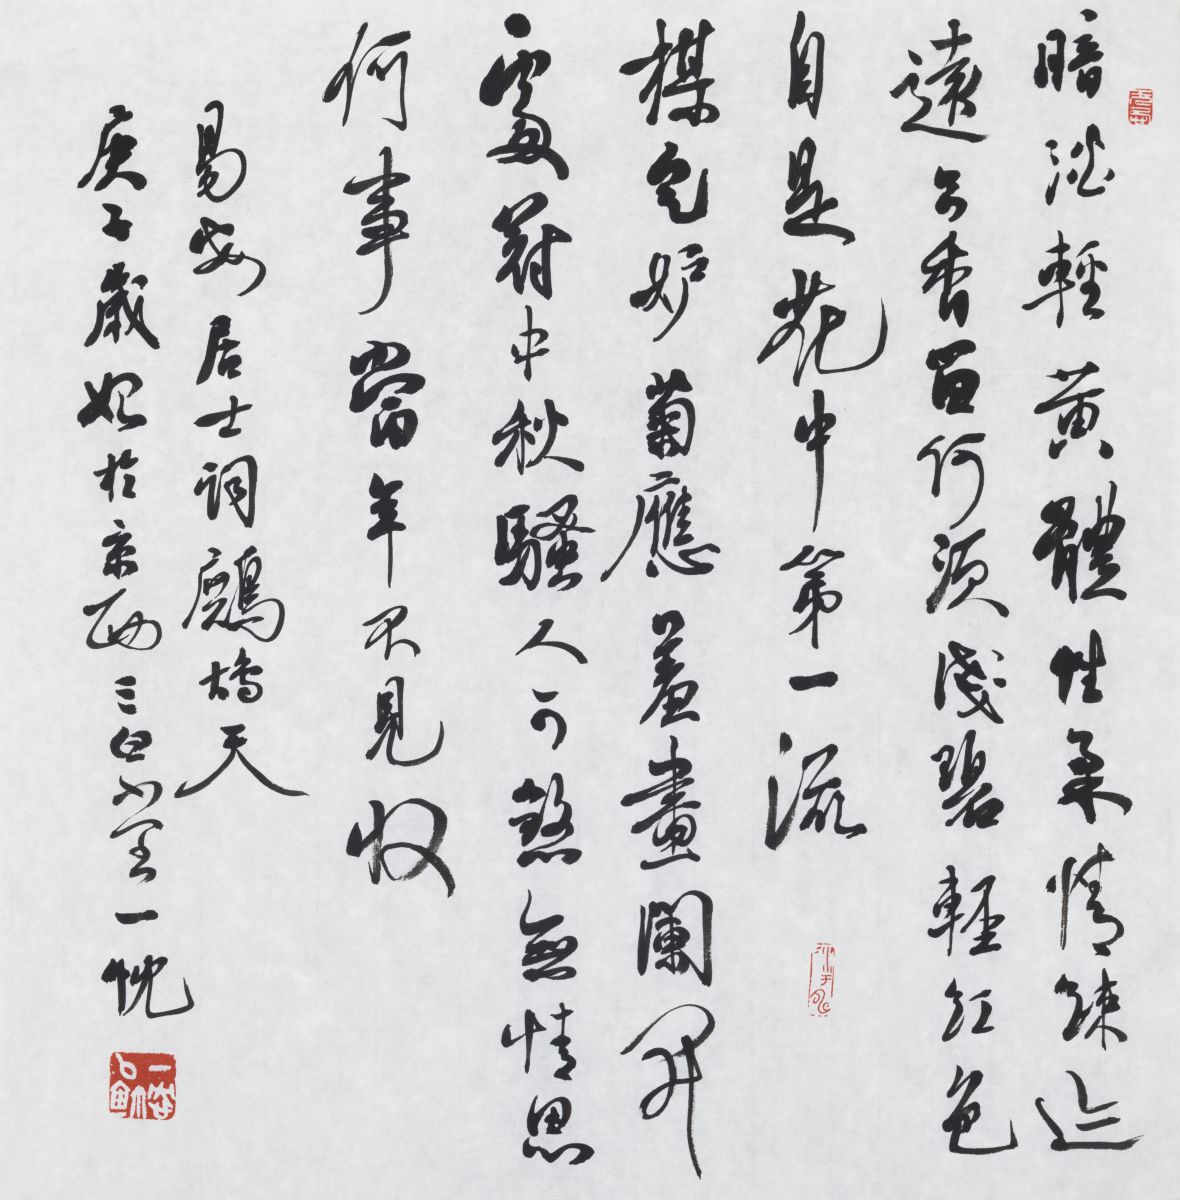 暗澹輕黃體性柔情疎迹
遠只香留何須淺碧輕紅色
自是花中第一流
楳定妒菊應羞畫闌開
處冠中秋騷人可煞無情思
何事當年不見收
易安居士詞鷓鴣天
庚子歲於京西三白一忱